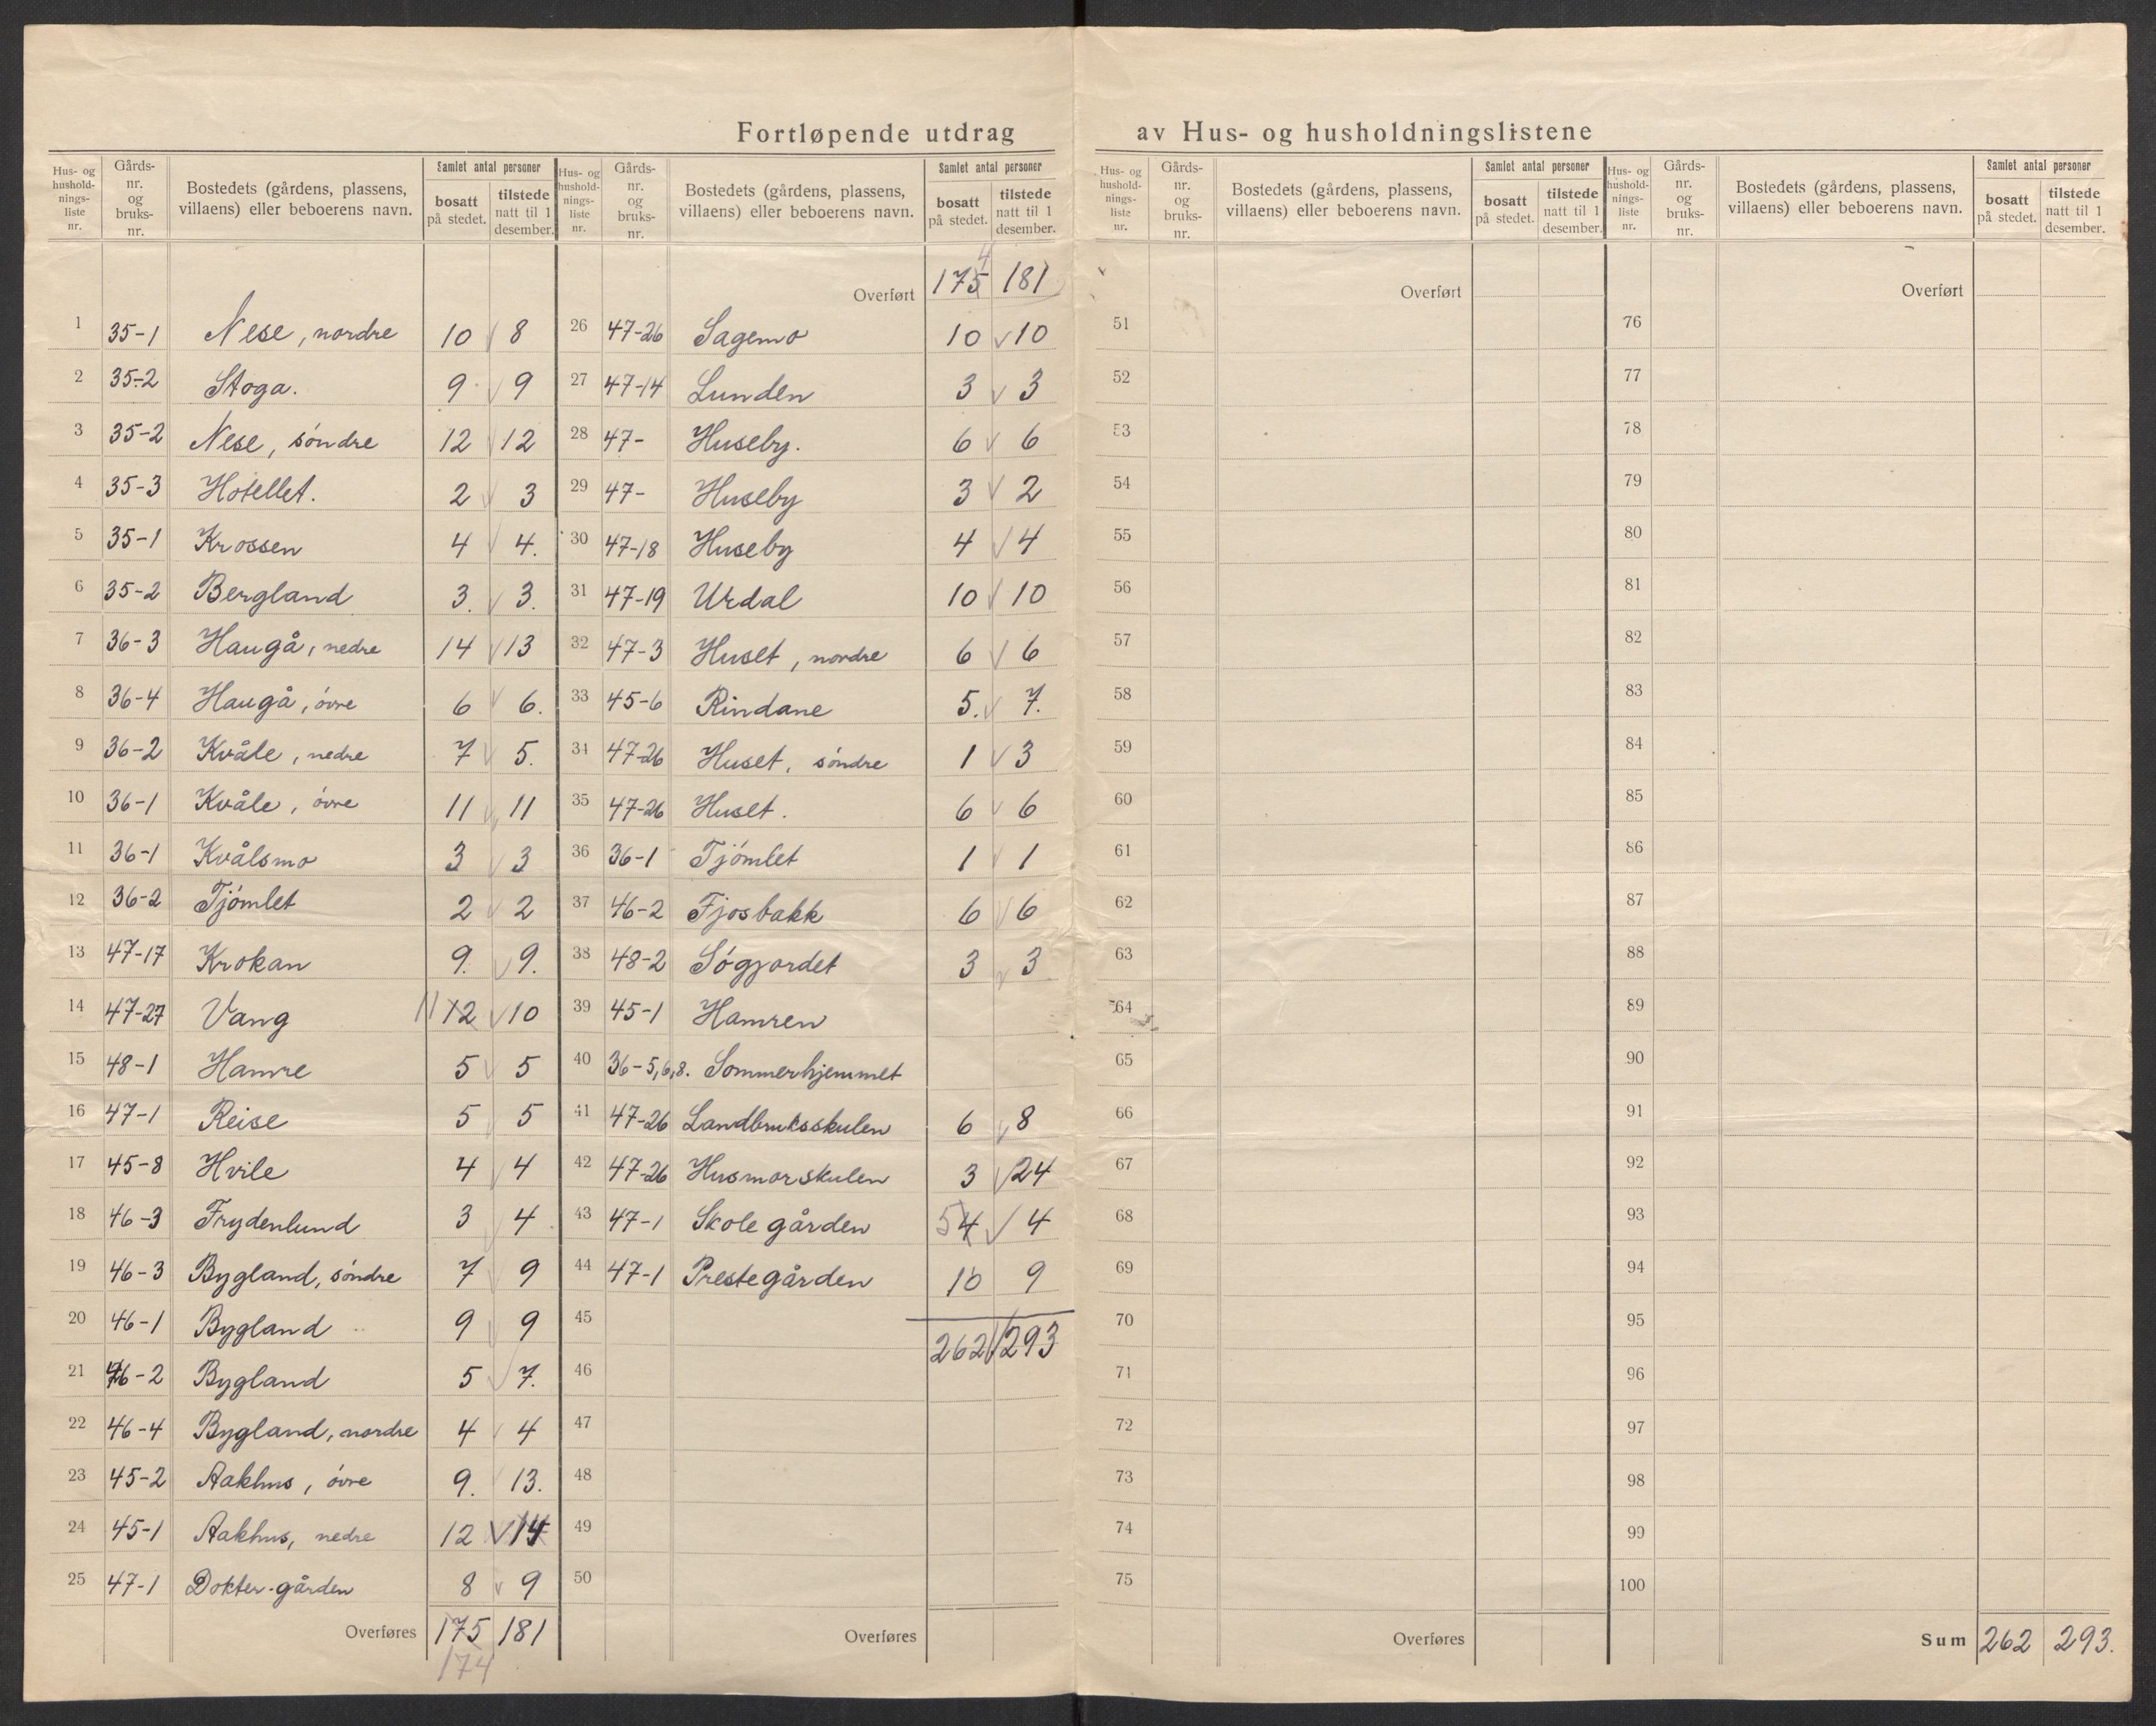 Fortløpende utdrag av Hus- og husholdningslistene
Hus- og husholdnings-liste nr. Gårds-nr. og bruks-nr. Bostedets (gårdens, plassens, villaens) eller beboerens navn. Samlet antal personer bosatt på stedet. tilstede natt til 1 desember.
1 35-1 Nese, nordre 10 8
2 35-2 Stoga. 9 9
3 35-2 Nese, søndre 12 12
4 35-3 Hotellet. 2 3
5 35-1 Krossen 4 4.
6 35-2 Bergland 3. 3.
7 36-3 Haugå, nedre 14 13
8 36-4 Haugå, øvre 6 6.
9 36-2 Kvåle, nedre 7 5.
10 36-1 Kvåle, øvre 11 11
11 36-1 Kvålsmo 3 3
12 36-2 Tjømlet 2 2
13 47-17 Krokan 9. 9.
14 47-27 Vang 11 12 10
15 48-1 Hamre 5 5
16 47-1 Reise 5 5
17 45-8 Hvile 4 4
18 46-3 Frydenlund 3 4
19 46-3 Bygland, søndre 7 9
20 46-1 Bygland 9 9
21 46-2 Bygland 5 7.
22 46-4 Bygland, nordre 4 4
23 45-2 Aakhus, øvre 9. 13.
24 45-1 Aakhus, nedre 12 14
25 47-1 Dokter-gården 8 9
Overføres 175 181
174
Hus- og husholdnings-liste nr. Gårds-nr. og bruks-nr. Bostedets (gårdens, plassens, villaens) eller beboerens navn. Samlet antal personer bosatt på stedet. tilstede natt til 1 desember.
4
Overført 175 181
26 47-26 Sagemo 10 10
27 47-14 Lunden 3 3
28 47- Huseby. 6 6
29 47- Huseby 3 2
30 47-18 Huseby 4 4
31 47-19 Urdal 10 10
32 47-3 Huset, nordre 6 6
33 45-6 Rindane 5. 7.
34 47-26 Huset, søndre 1 3
35 47-26 Huset. 6 6
36 36-1 Tjømlet 1 1
37 46-2 Fjosbakk 6 6
38 48-2 Søgjordet 3 3
39 45-1 Hamren
40 36-5,6,8. Sommerhjemmet
41 47-26 Landbruksskulen 6 8
42 47-26 Husmorskulen 3 24
43 47-1 Skolegården 5 4 4
44 47-1 Prestegården 10 9
45
262 293
46
47
48
49
50
Overføres
Hus- og husholdnings-liste nr. Gårds-nr. og bruks-nr. Bostedets (gårdens, plassens, villaens) eller beboerens navn. Samlet antal personer bosatt på stedet. tilstede natt til 1 desember.
Overført
51
52
53
54
55
56
57
58
59
60
61
62
63
64
65
66
67
68
69
70
71
72
73
74
75
Overføres
Hus- og husholdnings-liste nr. Gårds-nr. og bruks-nr. Bostedets (gårdens, plassens, villaens) eller beboerens navn. Samlet antal personer bosatt på stedet. tilstede natt til 1 desember.
Overført
76
77
78
79
80
81
82
83
84
85
86
87
88
89
90
91
92
93
94
95
96
97
98
99
100
Sum 262 293.